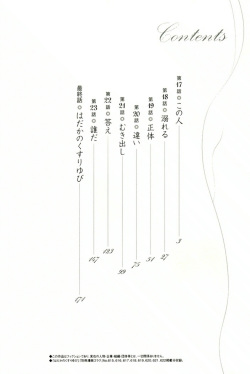 Contents
第17話 この人 3
第18話 溺れる 27
第19話 正体 51
第20話 違い 75
第21話 むき出し 99
第22話 答え 123
第23話 誰だ 147
最終話 はだかのくすりゆび 171